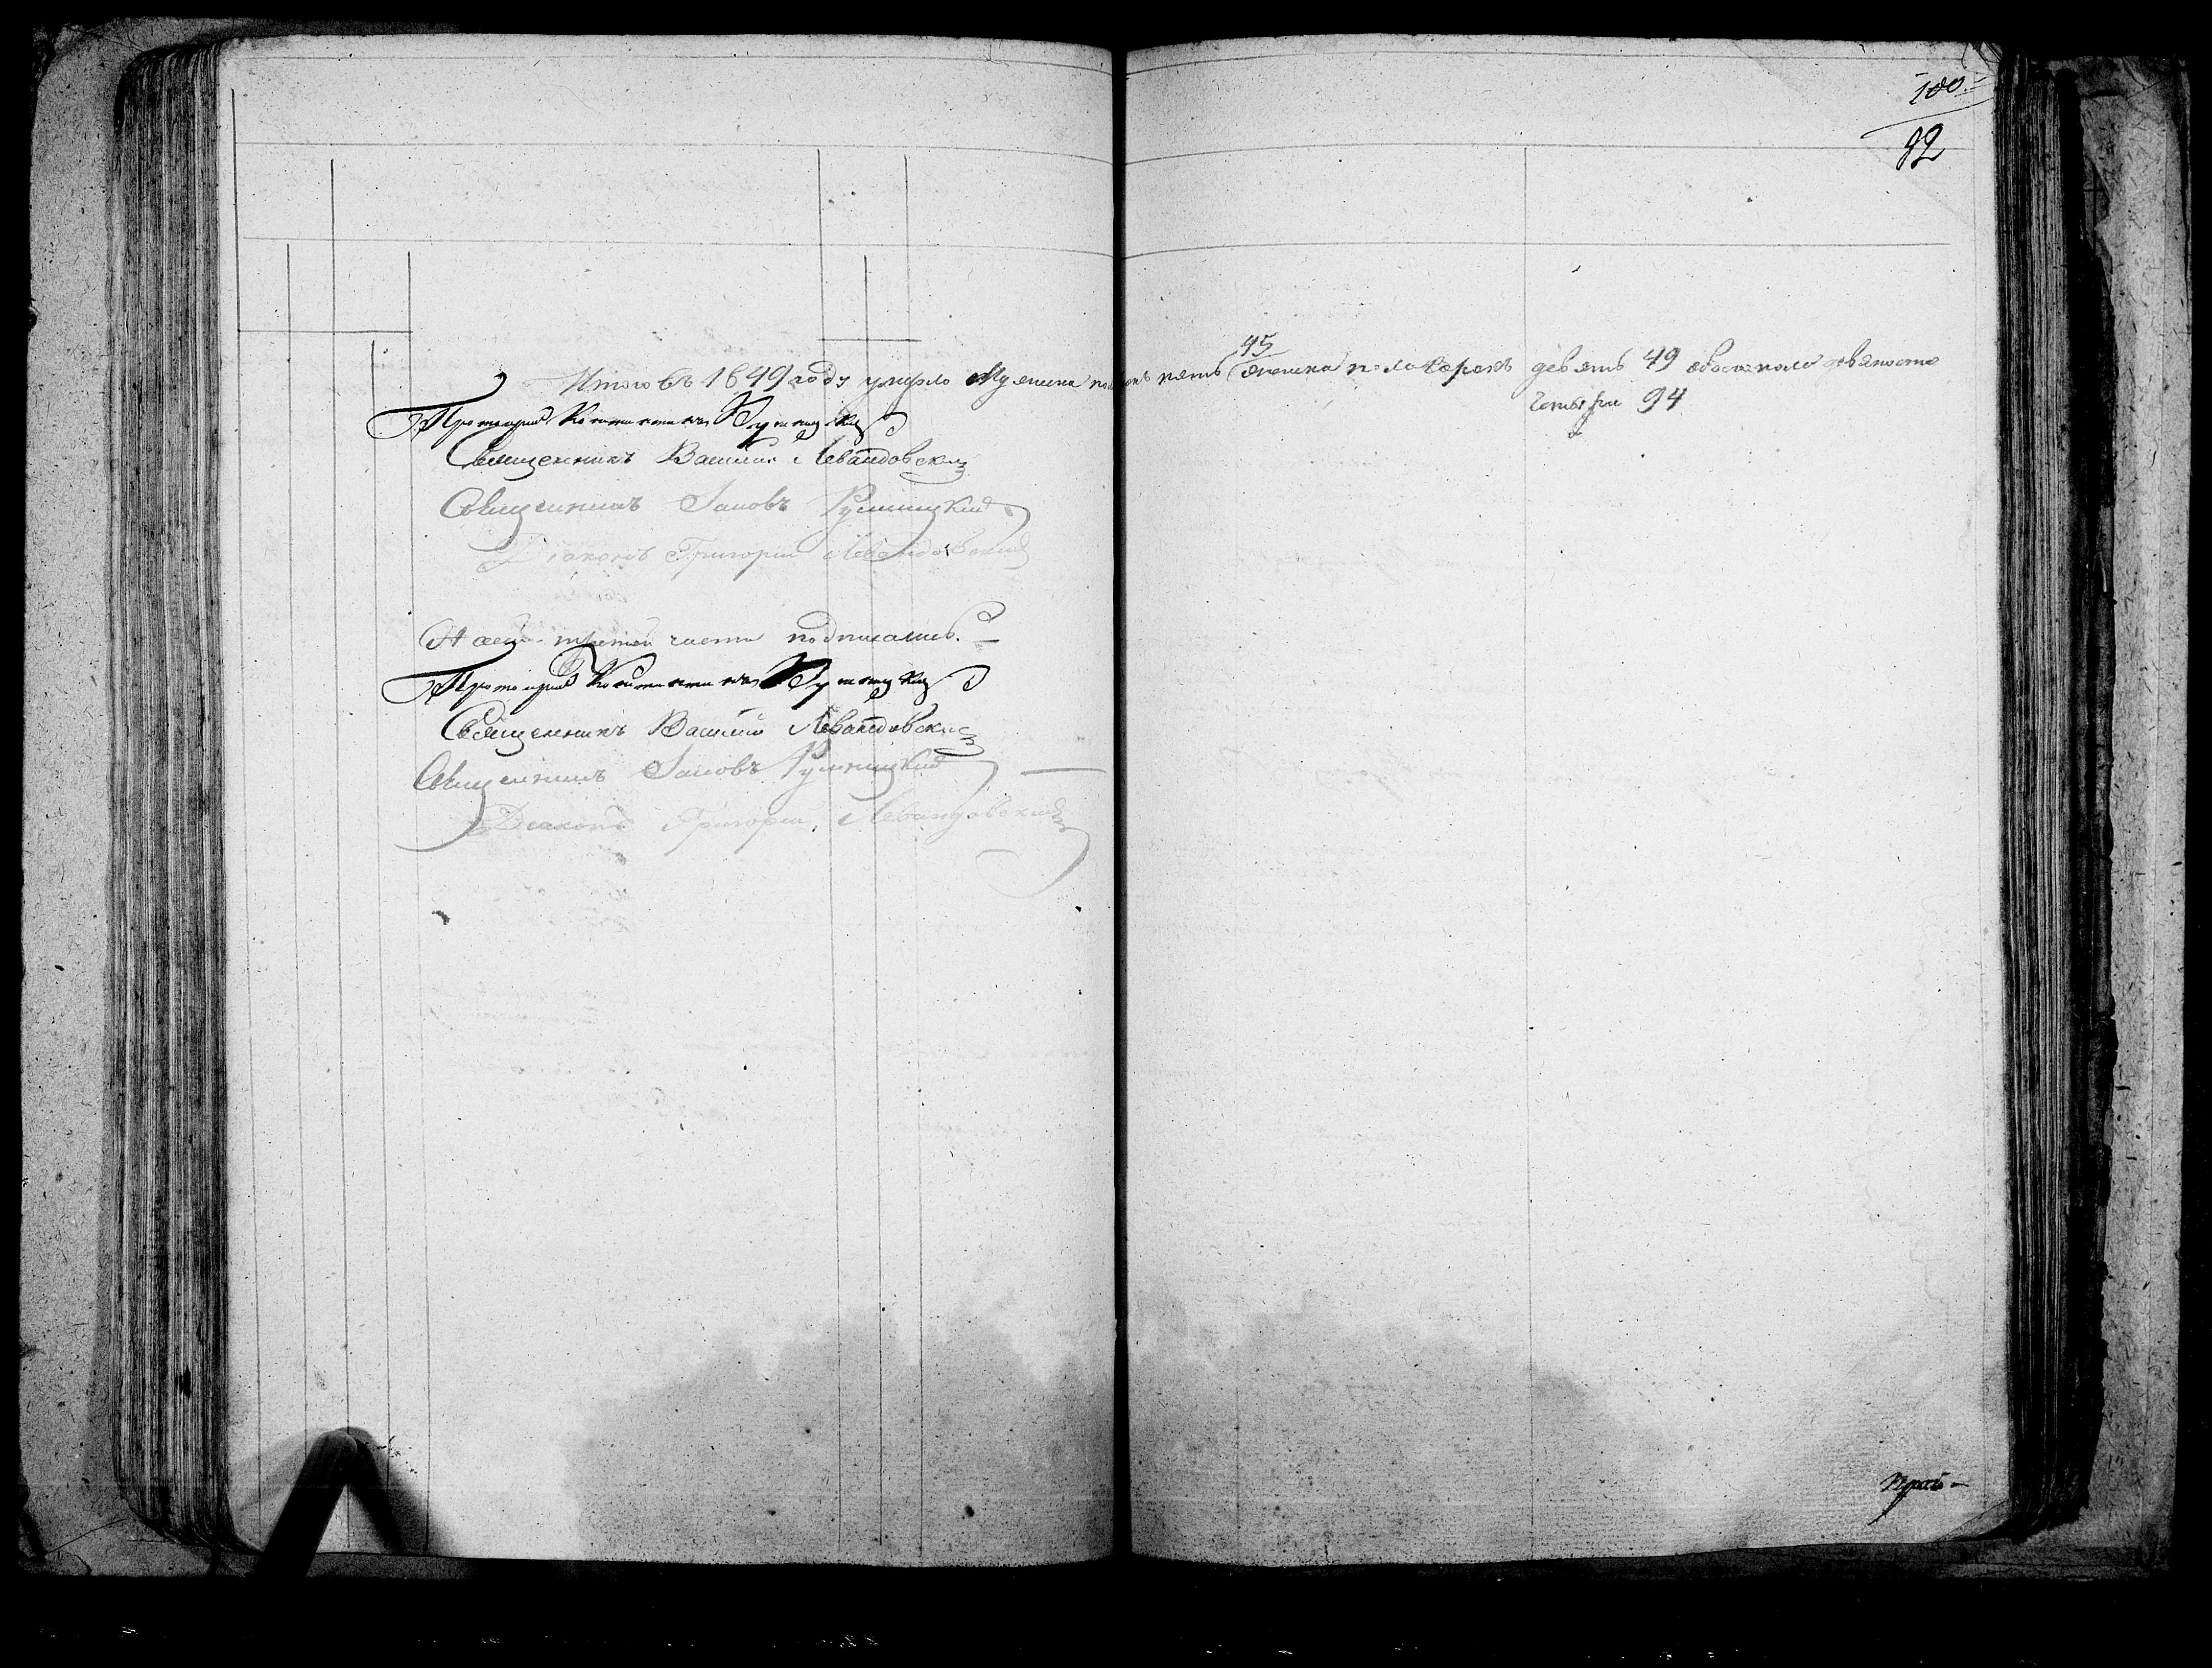 100
92
Итого въ 1849 году умерло Мужеска пол сорокъ пять 45 женска пола сорокъ девять 49 обоего пола девяносто
четыри 94
Протоиерей Константинъ
Священникъ Василий Левандовский
Священникъ Іаковъ Румницкий
Діаконъ Григорий Левандовский
К сей третей части подписались.
Протоиерей Константинъ
Священникъ Василий Левандовский
Священникъ Іаковъ Румницкий
Діаконъ Григорий Левандовский